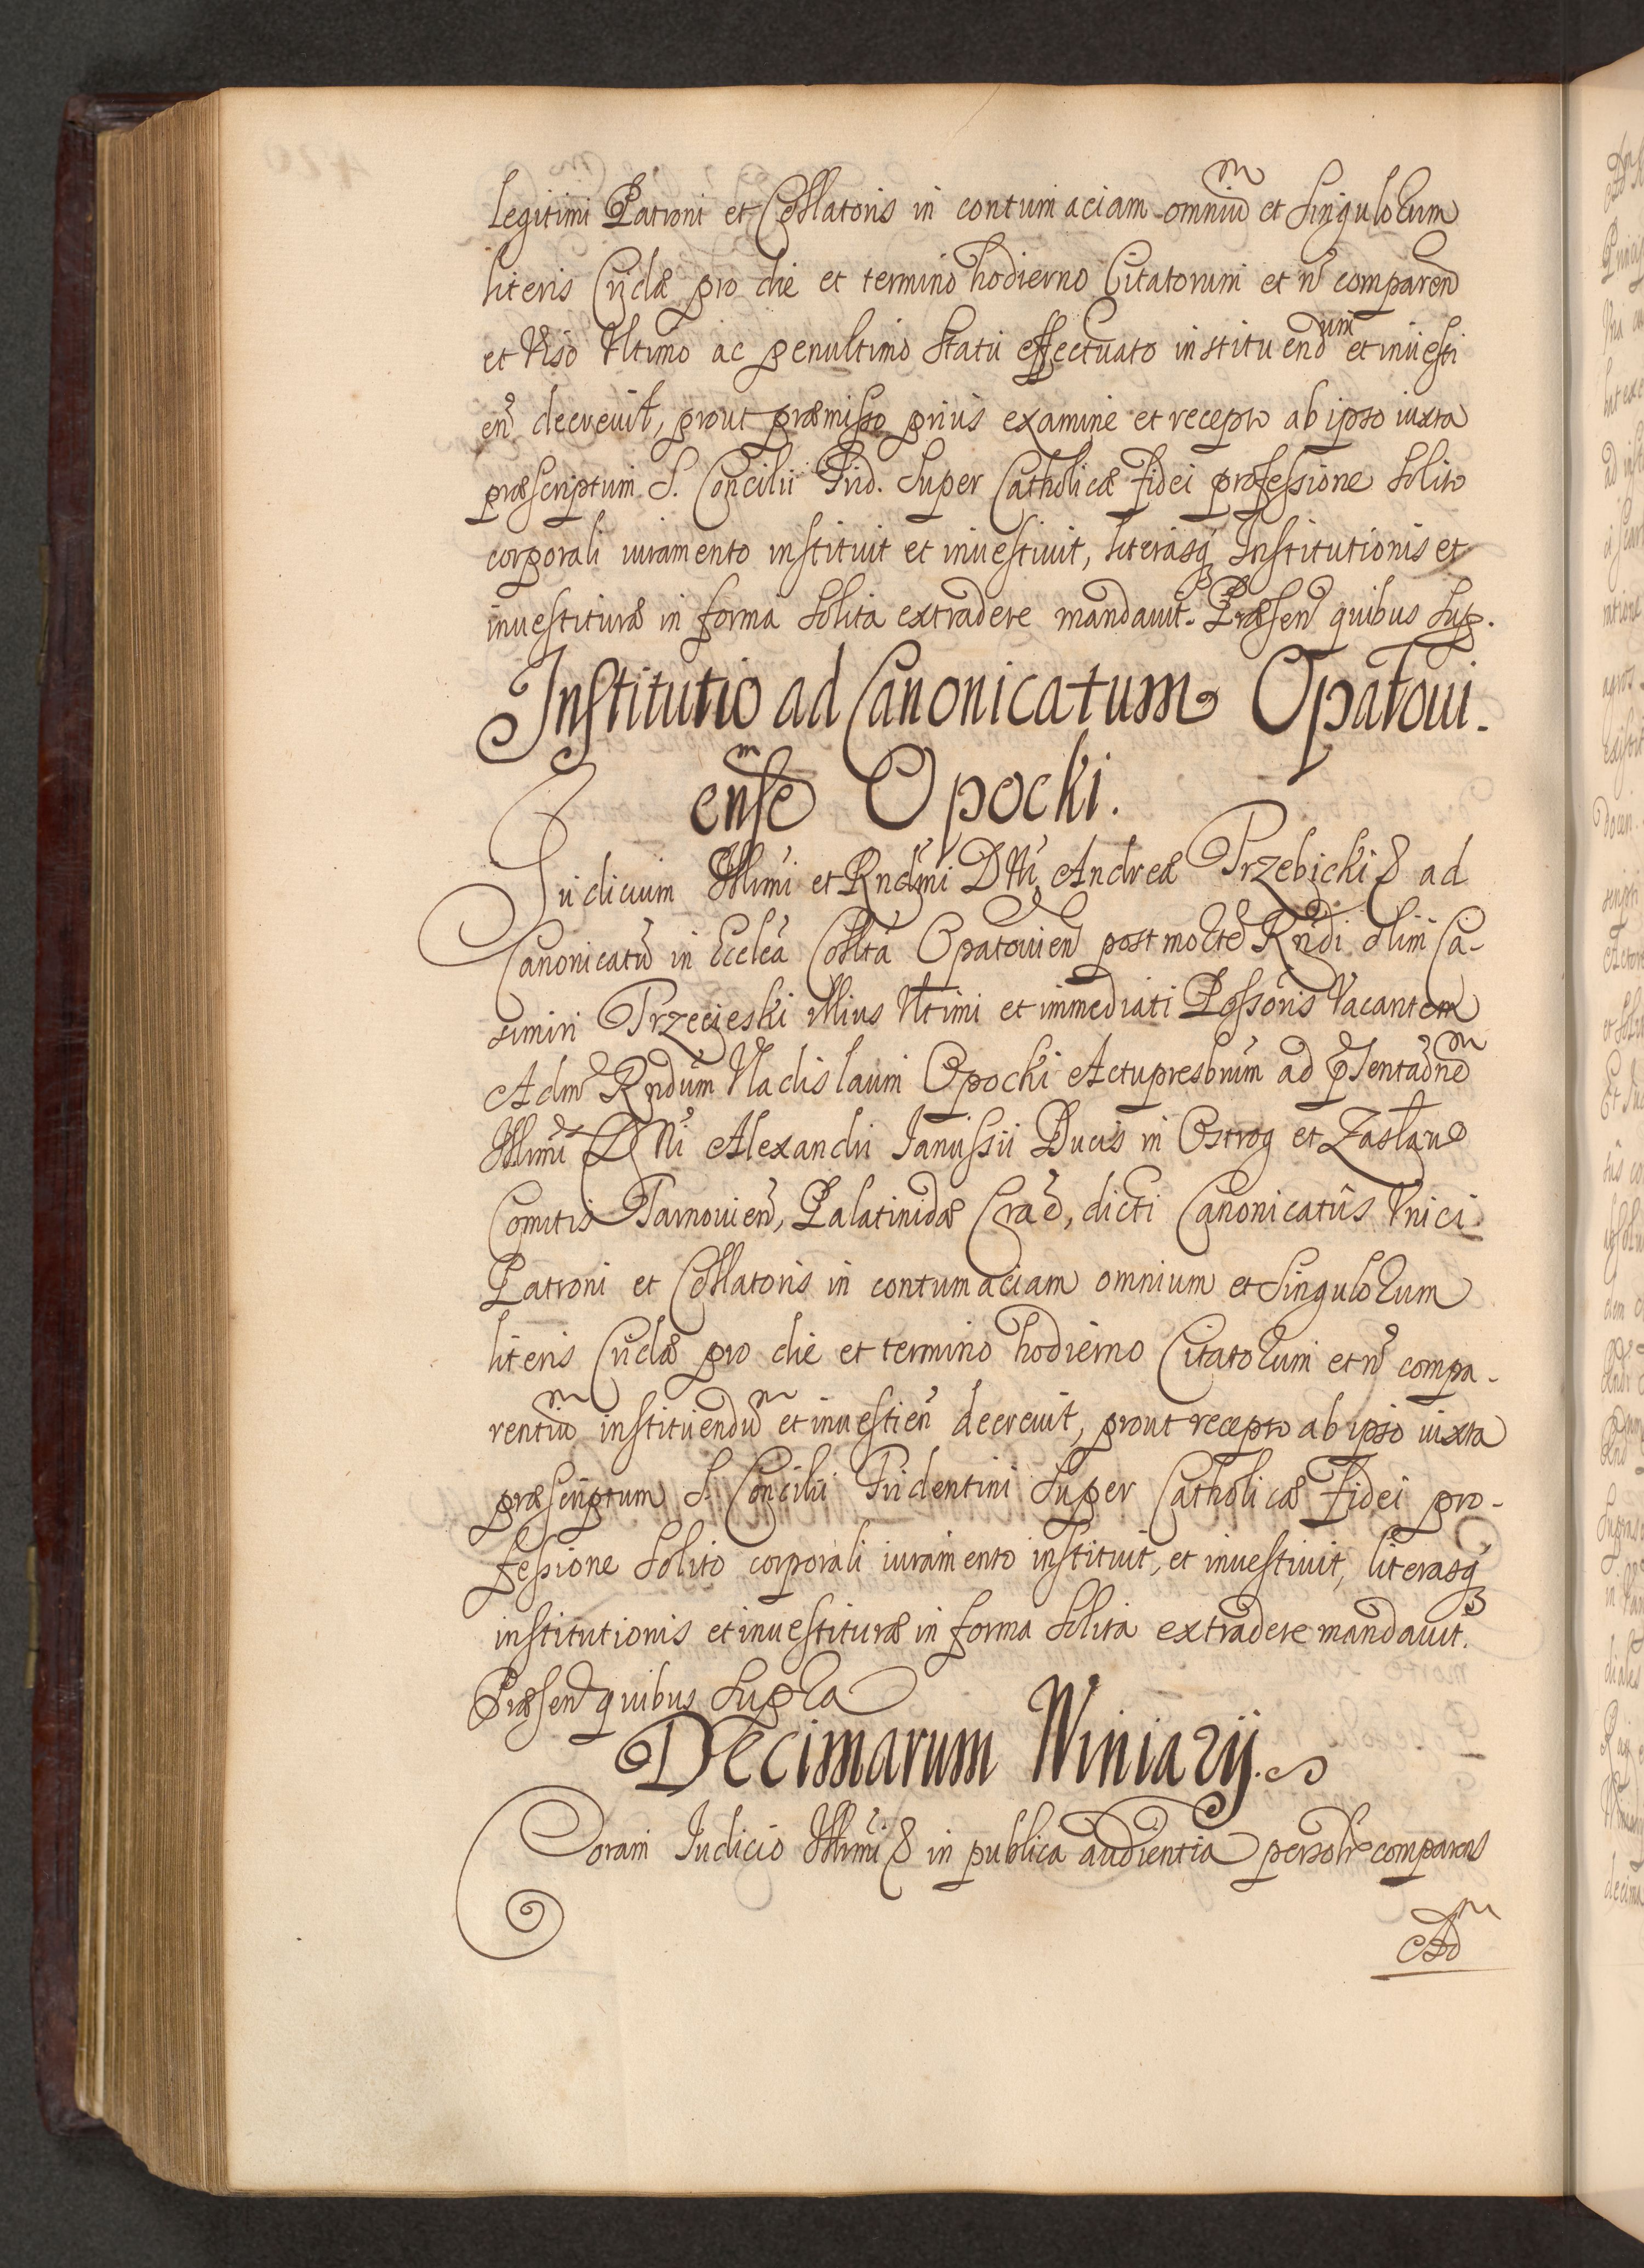 legitimi Patroni et Collatoris in contumaciam omniu͠m et singulorum
literis Crudæ pro die et termino hodierno Citatorum et n͠ comparen͠
et viso Vltimo ac penultimo statu effectuato instituendum et inuesti
en͠. decreuit, prout præmisso prius examine et recepto ab ipso iuxta
præscriptum S. Concilii Trid. super Catholicæ fidei professione solito
corporali iuramento instituit et inuestiuit, literasq₃ Institutionis et
inuestituræ in forma solita extradere mandauit. Præsen͠ quibus sup.
Institutio ad Canonicatum Opatoui-
ensem Opocki.
Iudicium Illmi et Rndmi D Ni, Andreæ Trzebicki & ad
Canonicatu͠ in Eccle͠a Collta Opatouien͠ post morte͠ Rn͠di olim Ca-
simiri Trzecieski illius Vltimi et immediati Possoris vacantem
Adm͠ Rndum Vladislaum Opocki Actupresbrum ad
Illmi D Ni Alexandri Ianussii Ducis in Ostrog et Zaslaw
Comitis Tarnouien͠, Palatinidæ Crac͠, dicti Canonicatûs Vnici
Patroni et Collatoris in contumaciam omnium et singulorum
literis Crudæ pro die et termino hodierno Citatorum et n͠ compa-
rentiu͠m instituendu͠m et inuestien͠ decreuit, prout recepto ab ipso iuxta
præscriptum S. Concilii Tridentini super Catholicæ fidei pro-
fessione solito corporali iuramento instituit, et inuestiuit, literasq₃
institutionis et inuestituræ in forma solita extradere mandauit.
Præsen͠ quibus supra
Decimarum Winiary.
Coram Iudicio Illmi & in publica audientia personlr comparens
Adm